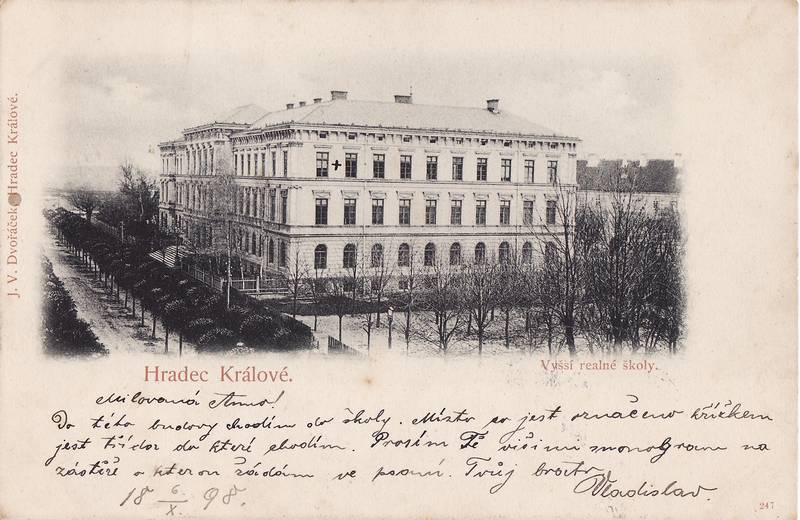 J. V. Dvořáček, Hradec Králové.
Hradec Králové.
Vyšší realné školy.
Milovaná Anno!
Do této budovy chodím do školy. Místo co jest označeno křížkem
jest třída do které chodím. Prosím Tě monogram na
zástěře o kterou žádám ve psaní. Tvůj bratr
Vladislav.
18 6/X. 98.
247